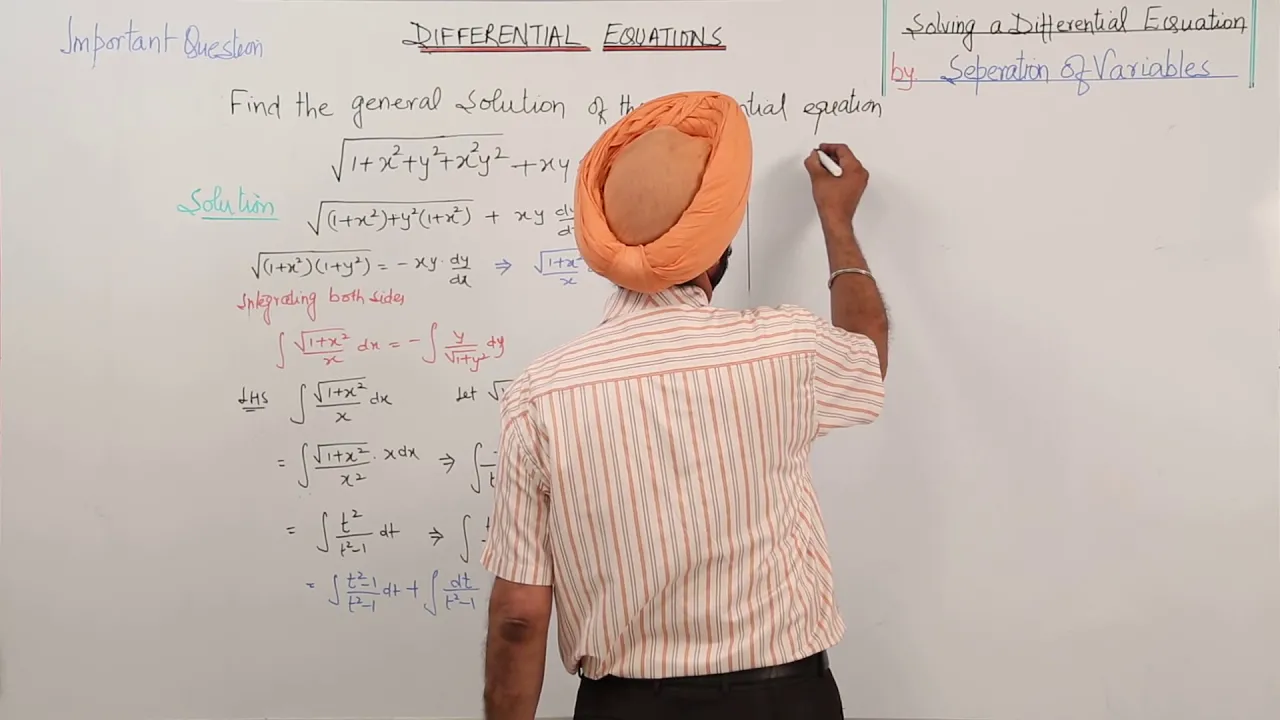 Important Question
DIFFERENTIAL EQUATIONS
Solving a Differential Equation
by Seperation of Variables
Find the general Solution of equation
√(1+x²+y²+x²y²) + xy
Solution
√((1+x²)+y²(1+x²)) + xy
√((1+x²)(1+y²)) = -xy·dy/dx ⇒ √(1+x²)/x
Integrating both sides
∫ √(1+x²)/x dx = -∫ y/√(1+y²) dy
LHS ∫ √(1+x²)/x dx Let
= ∫ √(1+x²)/x² · x dx ⇒ ∫
= ∫ t²/(t²-1) dt ⇒ ∫
= ∫ (t²-1)/(t²-1) dt + ∫ dt/(t²-1)